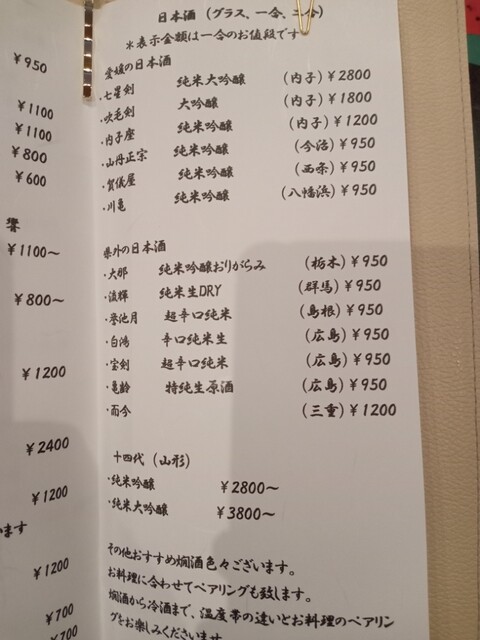 ¥950
¥1100
¥1100
¥800
¥600
響
¥1100〜
¥800〜
¥1200
¥2400
¥1200
います
¥1200
¥700
¥700
日本酒(グラス、一合、二合)
※表示金額は一合のお値段です
愛媛の日本酒
・七星剣 純米大吟醸 (内子)¥2800
・吹毛剣 大吟醸 (内子)¥1800
・内子座 純米吟醸 (内子)¥1200
・山丹正宗 純米吟醸 (今治)¥950
・賀儀屋 純米吟醸 (西条)¥950
・川亀 純米吟醸 (八幡浜)¥950
県外の日本酒
・大那 純米吟醸おりがらみ (栃木)¥950
・流輝 純米生DRY (群馬)¥950
・誉池月 超辛口純米 (島根)¥950
・白鴻 辛口純米生 (広島)¥950
・宝剣 超辛口純米 (広島)¥950
・亀齢 特純生原酒 (広島)¥950
・而今 (三重)¥1200
十四代(山形)
・純米吟醸 ¥2800〜
・純米大吟醸 ¥3800〜
その他おすすめ燗酒色々ございます。
お料理に合わせてペアリングも致します。
燗酒から冷酒まで、温度帯の違いとお料理のペアリン
グをお楽しみくださいます